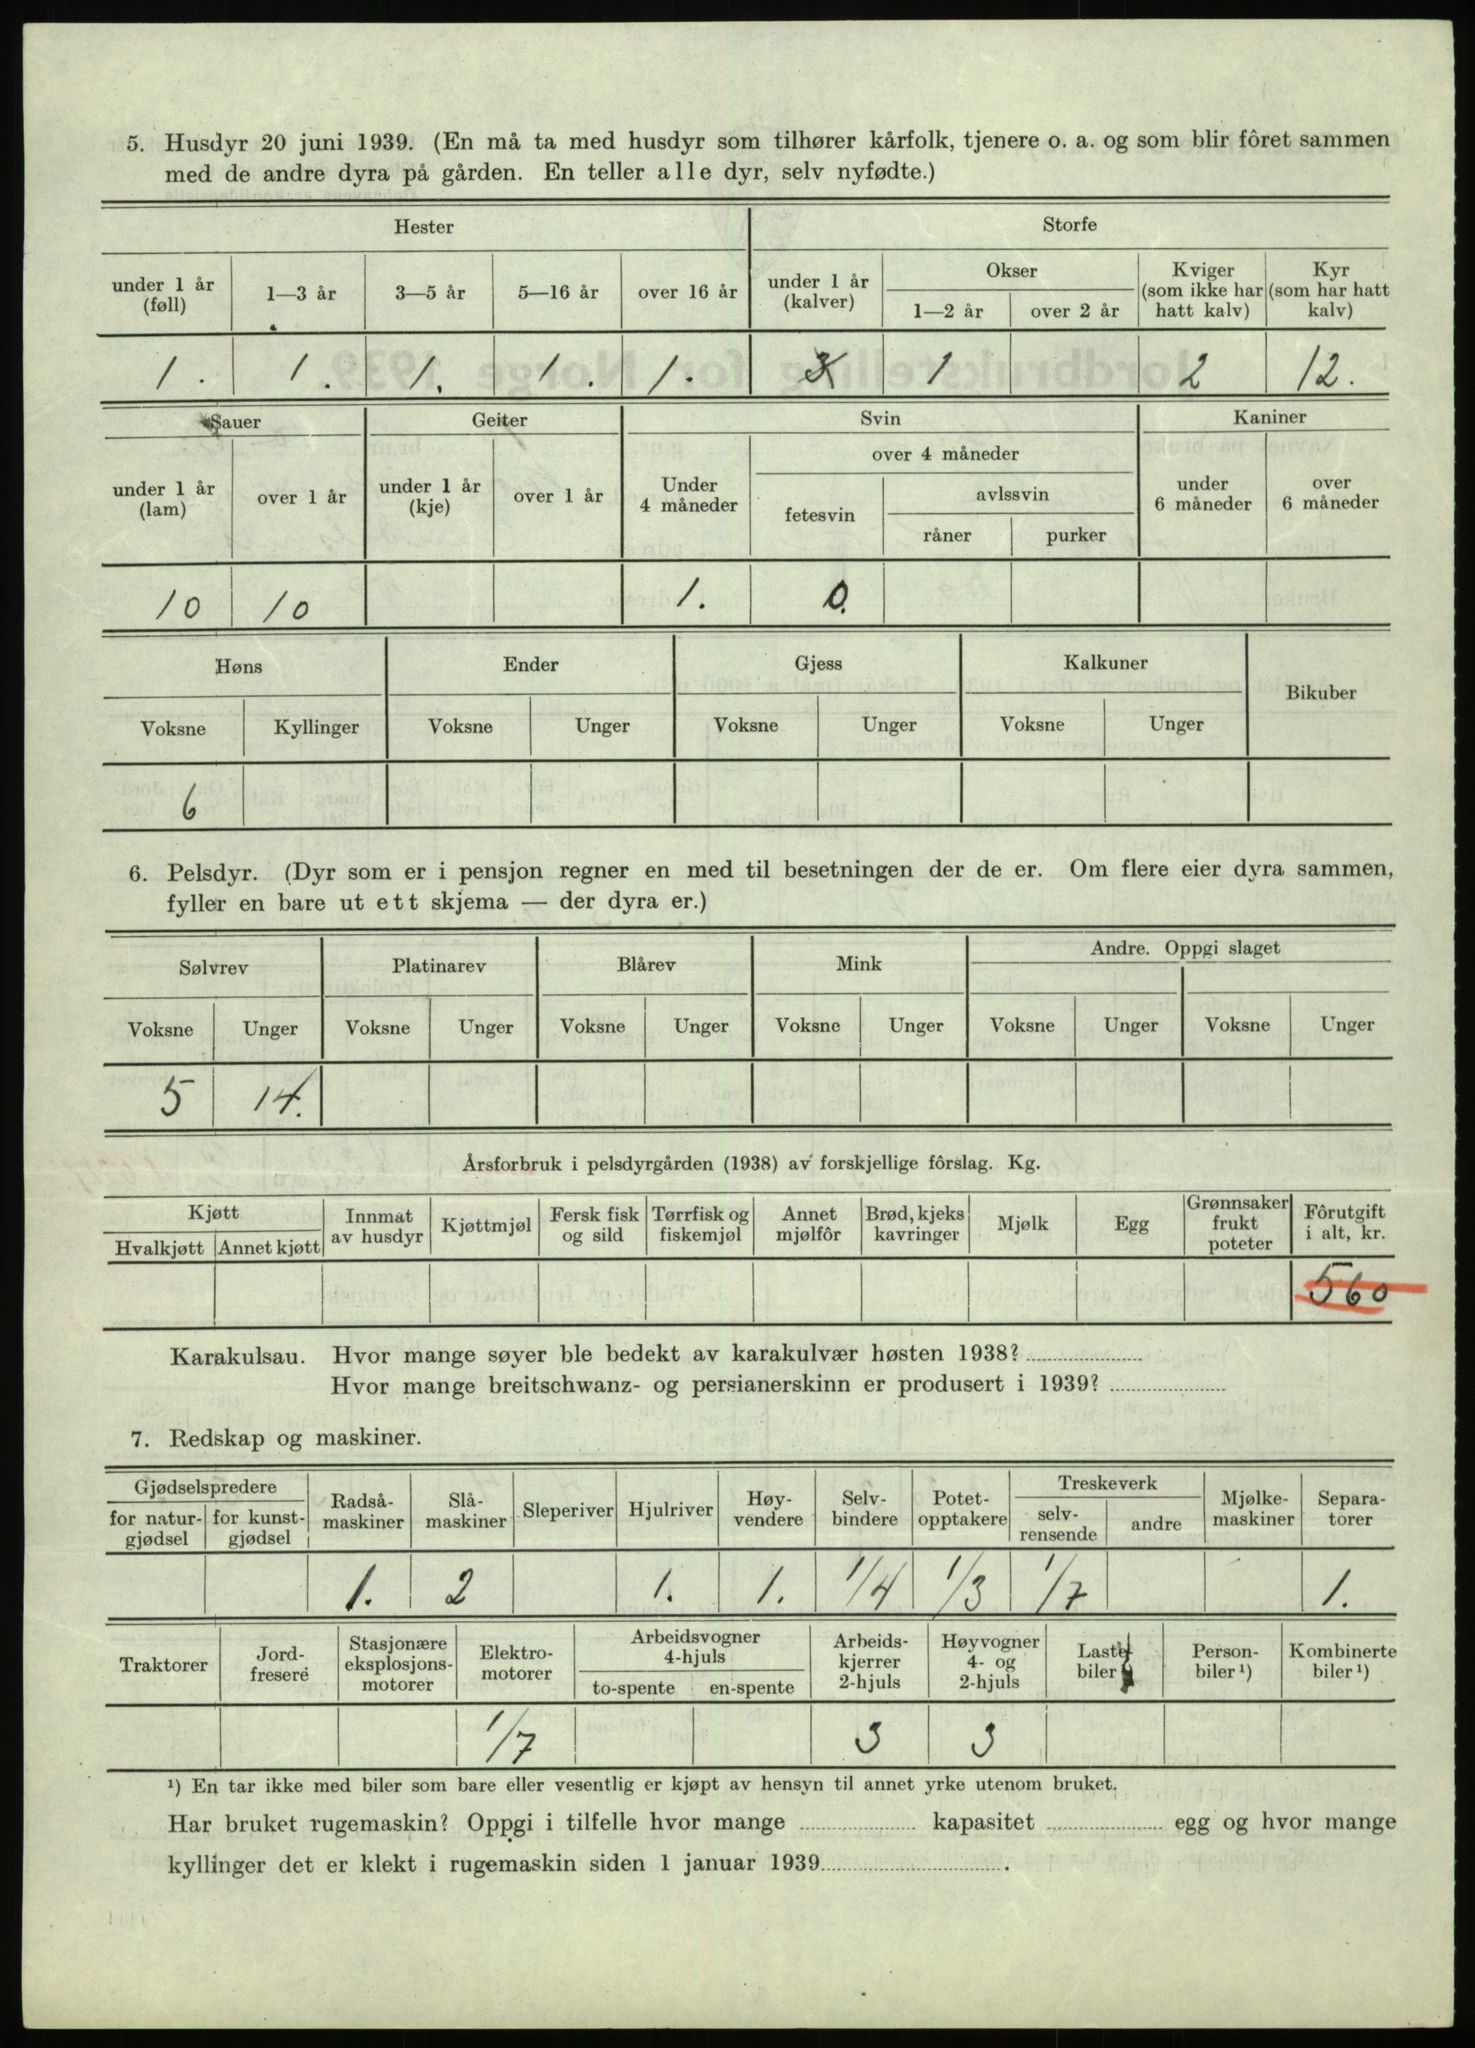 5. Husdyr 20 juni 1939. (En må ta med husdyr som tilhører kårfolk, tjenere o. a. og som blir fôret sammen
med de andre dyra på gården. En teller alle dyr, selv nyfødte.)
Hester Storfe
under 1 år (føll) 1—3 år 3—5 år 5—16 år over 16 år under 1 år (kalver) Okser 1—2 år over 2 år Kviger (som ikke har hatt kalv) Kyr (som har hatt kalv)
1. 1. 1. 1. 1. 1 2 12.
Sauer Geiter Svin Kaniner
under 1 år (lam) over 1 år under 1 år (kje) over 1 år Under 4 måneder over 4 måneder fetesvin avlssvin råner purker under 6 måneder over 6 måneder
10 10 1. 0.
Høns Ender Gjess Kalkuner Bikuber
Voksne Kyllinger Voksne Unger Voksne Unger Voksne Unger
6
6. Pelsdyr. (Dyr som er i pensjon regner en med til besetningen der de er. Om flere eier dyra sammen,
fyller en bare ut ett skjema — der dyra er.)
Sølvrev Platinarev Blårev Mink Andre. Oppgi slaget
Voksne Unger Voksne Unger Voksne Unger Voksne Unger Voksne Unger Voksne Unger
5 14.
Årsforbruk i pelsdyrgården (1938) av forskjellige fôrslag. Kg.
Kjøtt Hvalkjøtt Annet kjøtt Innmat av husdyr Kjøttmjøl Fersk fisk og sild Tørrfisk og fiskemjøl Annet mjølfôr Brød, kjeks kavringer Mjølk Egg Grønnsaker frukt poteter Fôrutgift i alt, kr.
560
Karakulsau. Hvor mange søyer ble bedekt av karakulvær høsten 1938?
Hvor mange breitschwanz- og persianerskinn er produsert i 1939?
7. Redskap og maskiner.
Gjødselspredere for natur-gjødsel for kunst-gjødsel Radså-maskiner Slå-maskiner Sleperiver Hjulriver Høy-vendere Selv-bindere Potet-opptakere Treskeverk selv-rensende andre Mjølke-maskiner Separa-torer
1. 2 1. 1. 1/4 1/3 1/7 1.
Traktorer Jord-fresere Stasjonære eksplosjons-motorer Elektro-motorer Arbeidsvogner 4-hjuls to-spente en-spente Arbeids-kjerrer 2-hjuls Høyvogner 4- og 2-hjuls Laste-biler Person-biler ¹) Kombinerte biler ¹)
1/7 3 3
¹) En tar ikke med biler som bare eller vesentlig er kjøpt av hensyn til annet yrke utenom bruket.
Har bruket rugemaskin? Oppgi i tilfelle hvor mange kapasitet egg og hvor mange
kyllinger det er klekt i rugemaskin siden 1 januar 1939.